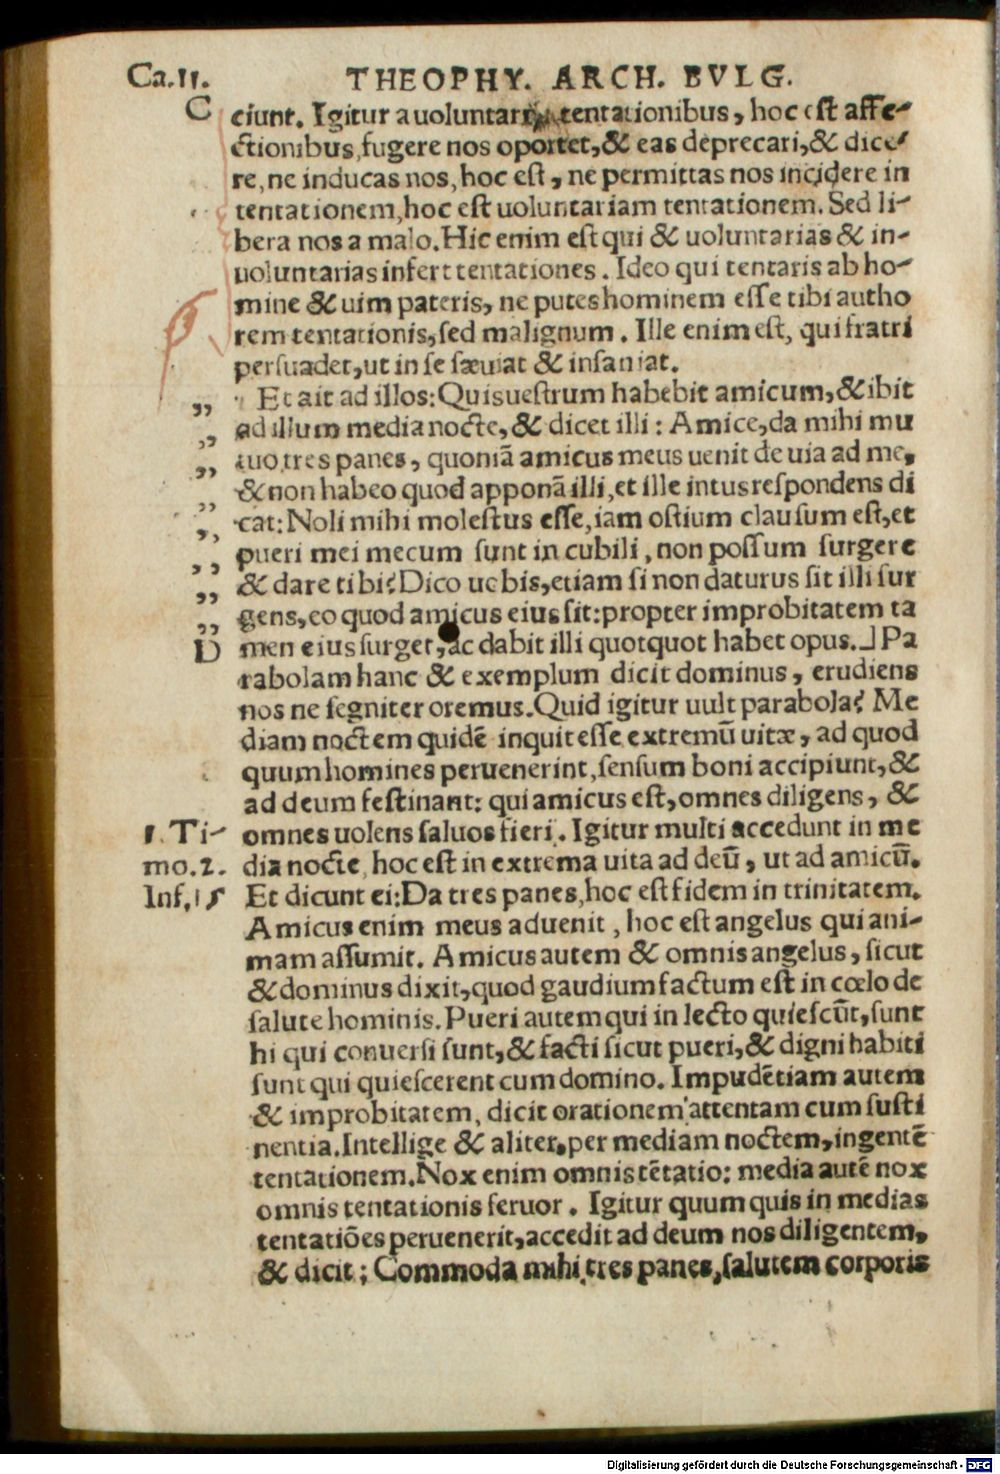 Ca.11. THEOPHY. ARCH. BVLG.
C ciunt. Igitur a uoluntariis tentationibus, hoc est affe-
ctionibus, fugere nos oportet, & eas deprecari, & dice-
re, ne inducas nos, hoc est, ne permittas nos incidere in
tentationem, hoc est uoluntariam tentationem. Sed li-
bera nos a malo. Hic enim est qui & uoluntarias & in-
uoluntarias infert tentationes. Ideo qui tentaris ab ho-
mine & uim pateris, ne putes hominem esse tibi autho
rem tentationis, sed malignum. Ille enim est, qui fratri
persuadet, ut in se sæuiat & insaniat.
,, Et ait ad illos: Quis uestrum habebit amicum, & ibit
,, ad illum media nocte, & dicet illi: Amice, da mihi mu
,, tuo tres panes, quoniā amicus meus uenit de uia ad me,
,, & non habeo quod apponā illi, et ille intus respondens di
,, cat: Noli mihi molestus esse, iam ostium clausum est, et
,, pueri mei mecum sunt in cubili, non possum surgere
,, & dare tibi? Dico uobis, etiam si non daturus sit illi sur
,, gens, eo quod amicus eius sit: propter improbitatem ta
D men eius surget, ac dabit illi quotquot habet opus.⅃ Pa
rabolam hanc & exemplum dicit dominus, erudiens
nos ne segniter oremus. Quid igitur uult parabola? Me
diam noctem quidē inquit esse extremū uitæ, ad quod
quum homines peruenerint, sensum boni accipiunt, &
ad deum festinant: qui amicus est, omnes diligens, &
1. Ti- omnes uolens saluos fieri. Igitur multi accedunt in me
mo.2. dia nocte, hoc est in extrema uita ad deū, ut ad amicū.
Inf.15 Et dicunt ei: Da tres panes, hoc est fidem in trinitatem.
Amicus enim meus aduenit, hoc est angelus qui ani-
mam assumit. Amicus autem & omnis angelus, sicut
& dominus dixit, quod gaudium factum est in cœlo de
salute hominis. Pueri autem qui in lecto quiescūt, sunt
hi qui conuersi sunt, & facti sicut pueri, & digni habiti
sunt qui quiescerent cum domino. Impudētiam autem
& improbitatem, dicit orationem attentam cum susti
nentia. Intellige & aliter, per mediam noctem, ingentē
tentationem. Nox enim omnis tētatio: media autē nox
omnis tentationis feruor. Igitur quum quis in medias
tentatiōes peruenerit, accedit ad deum nos diligentem,
& dicit; Commoda mihi tres panes, salutem corporis
Digitalisierung gefördert durch die Deutsche Forschungsgemeinschaft - DFG